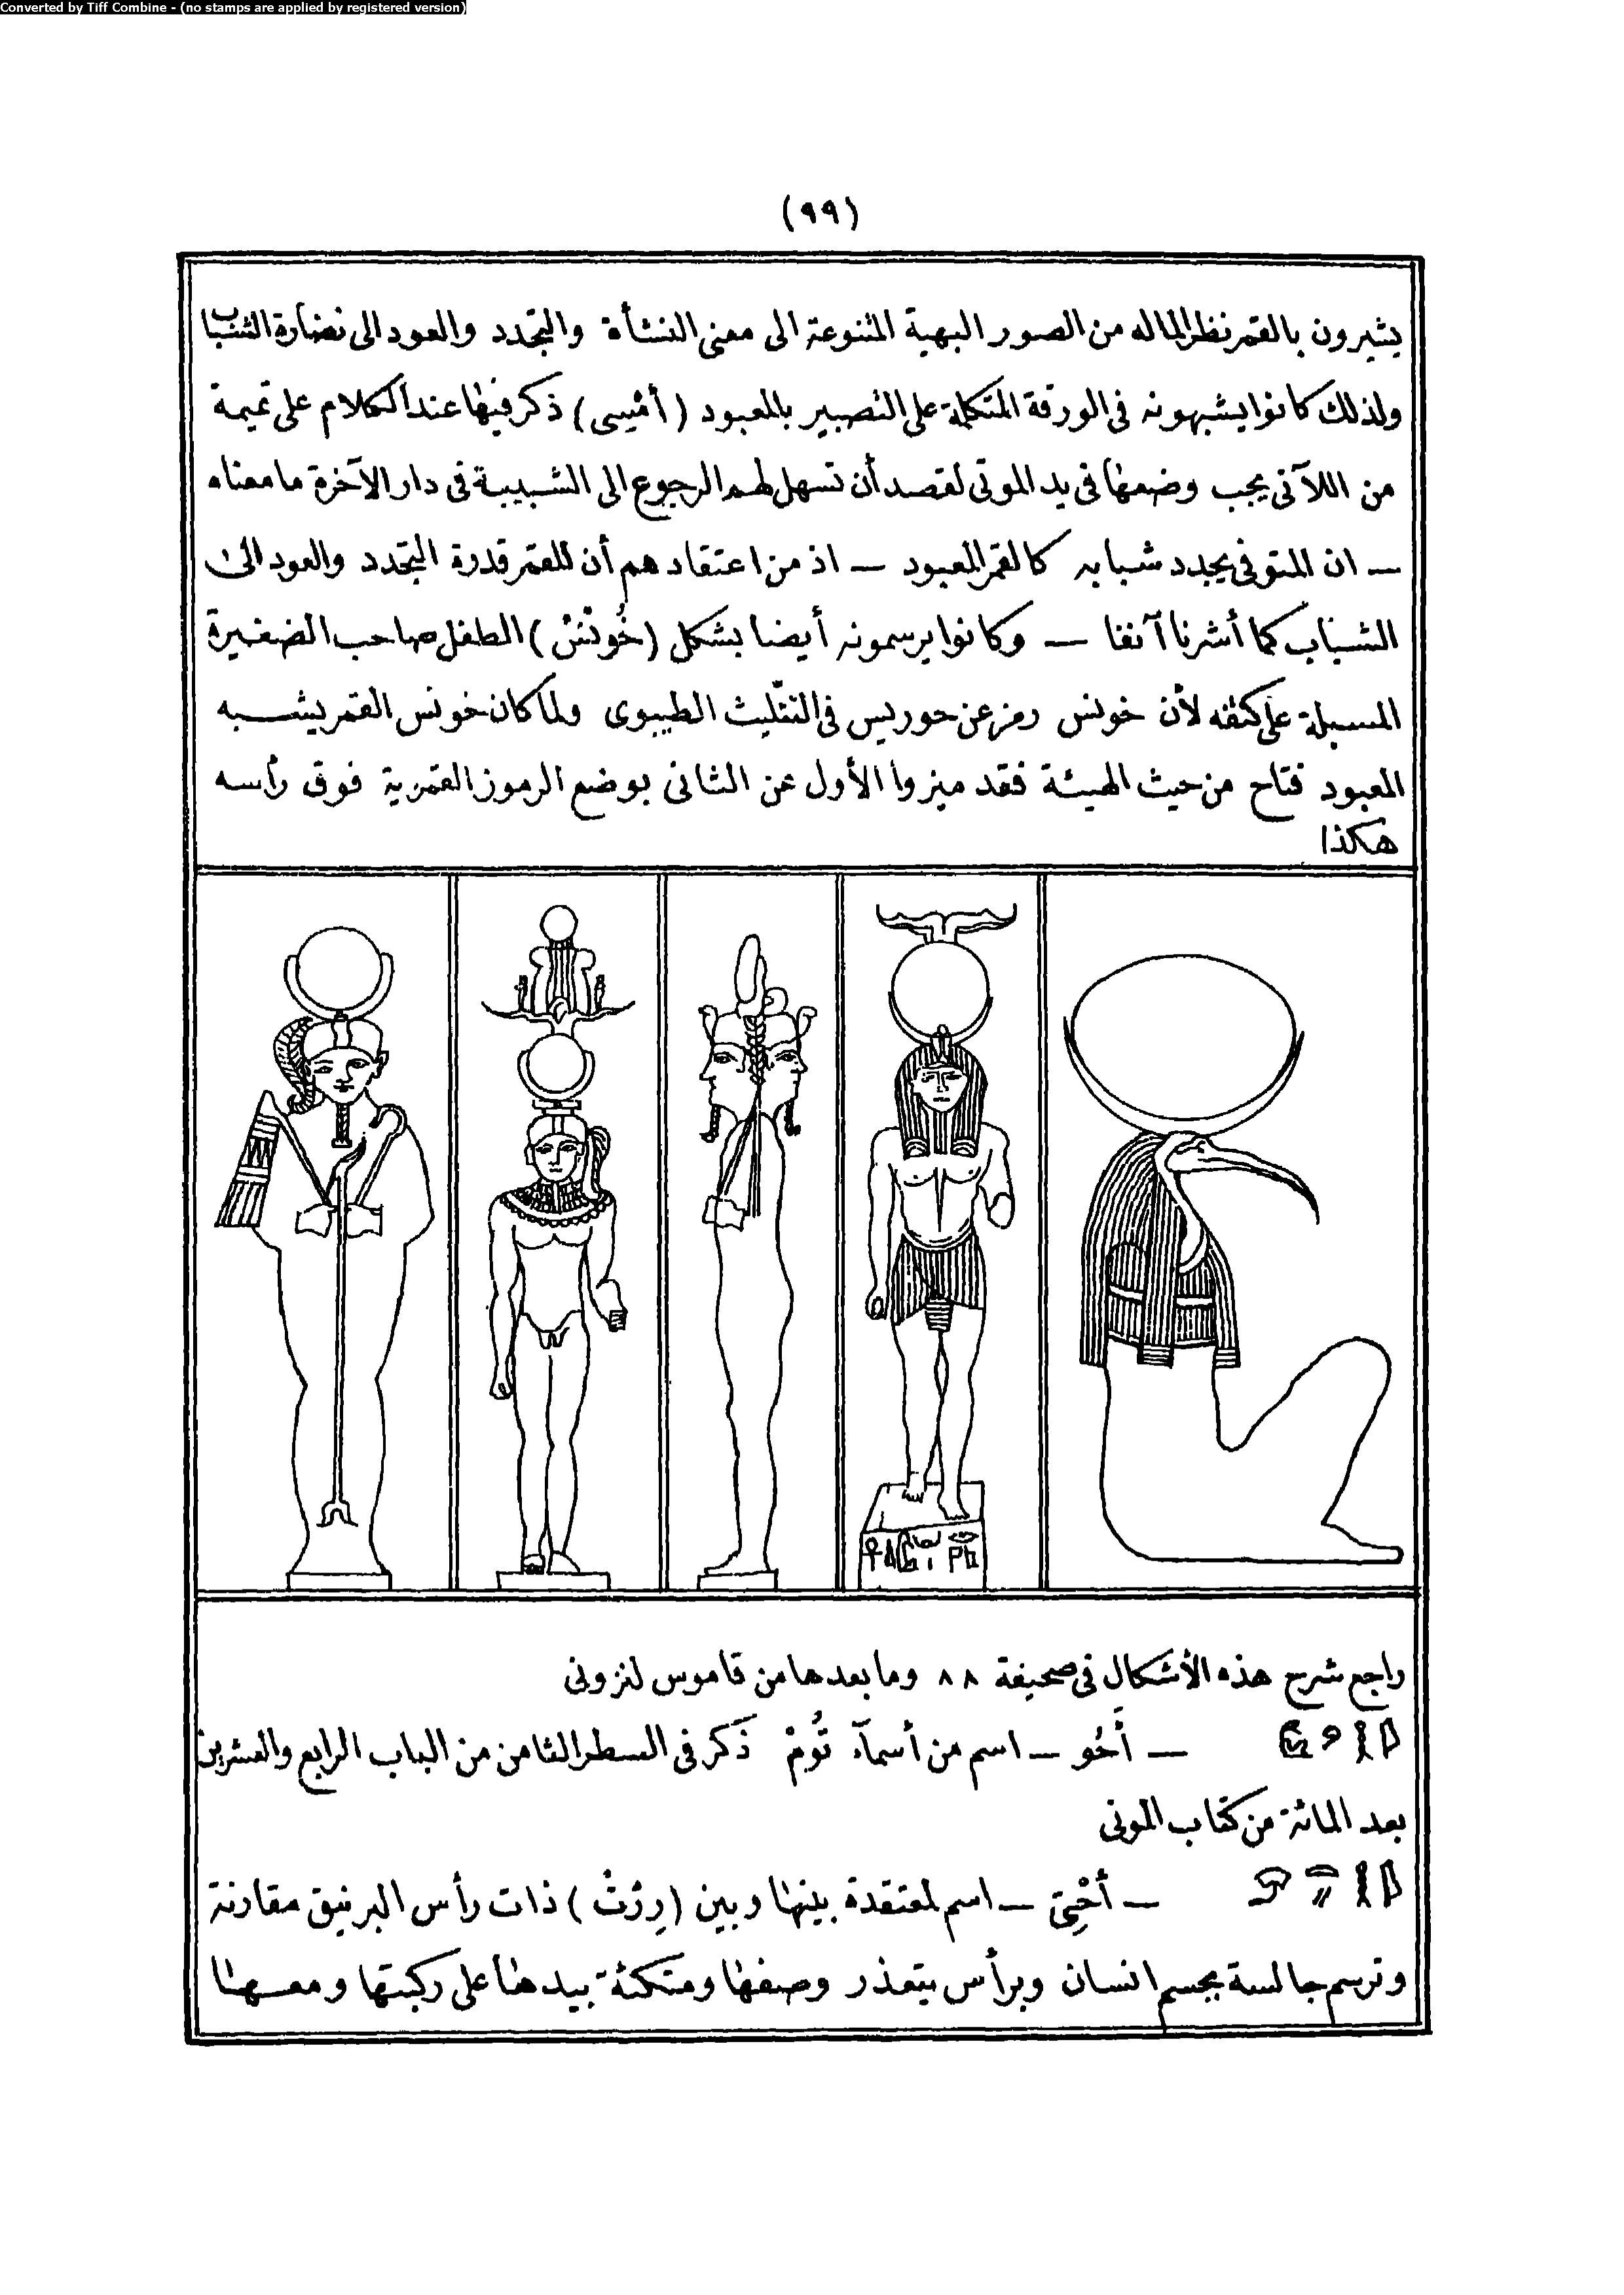 Converted by Tiff Combine - (no stamps are applied by registered version)
(٩٩)
يشيرون بالقمر نظرا لما له من الصور البهية المتنوعة الى معنى النشأة والتجدد والعود الى نضارة الشباب
ولذلك كانوا يشبهونه فى الورقة المتكلمة على التصبير بالمعبود (أمسى) ذكر فيها عند الكلام على تميمة
من اللآتى يجب وضعها فى يد الموتى لقصد أن تسهل لهم الرجوع الى الشبيبة فى دار الآخرة ما معناه
— ان المتوفى يجدد شبابه كالقمر المعبود — اذ من اعتقادهم أن للقمر قدرة التجدد والعود الى
الشباب كما أشرنا آنفا — وكانوا يرسمونه أيضا بشكل (خُونْسْ) الطفل صاحب الضفيرة
المسبلة على كتفه لأن خونس رمز عن حوريس فى التثليث الطيبوى ولما كان خونس القمر يشبه
المعبود فتاح من حيث الهيئة فقد ميزوا الأول عن الثانى بوضع الرموز القمرية فوق رأسه
هكذا
راجع شرح هذه الأشكال فى صحيفة ٨٨ وما بعدها من قاموس لنزونى
— أَحُو — اسم من أسمآء تُومْ ذكر فى السطر الثامن من الباب الرابع والعشرين
بعد المائة من كتاب الموتى
— أحْتِى — اسم لمعتقدة بينها وبين (رِرْتْ) ذات رأس البرنيق مقارنة
وترسم جالسة بجسم انسان وبرأس يتعذر وصفها ومتكئة بيدها على ركبتها ومعها